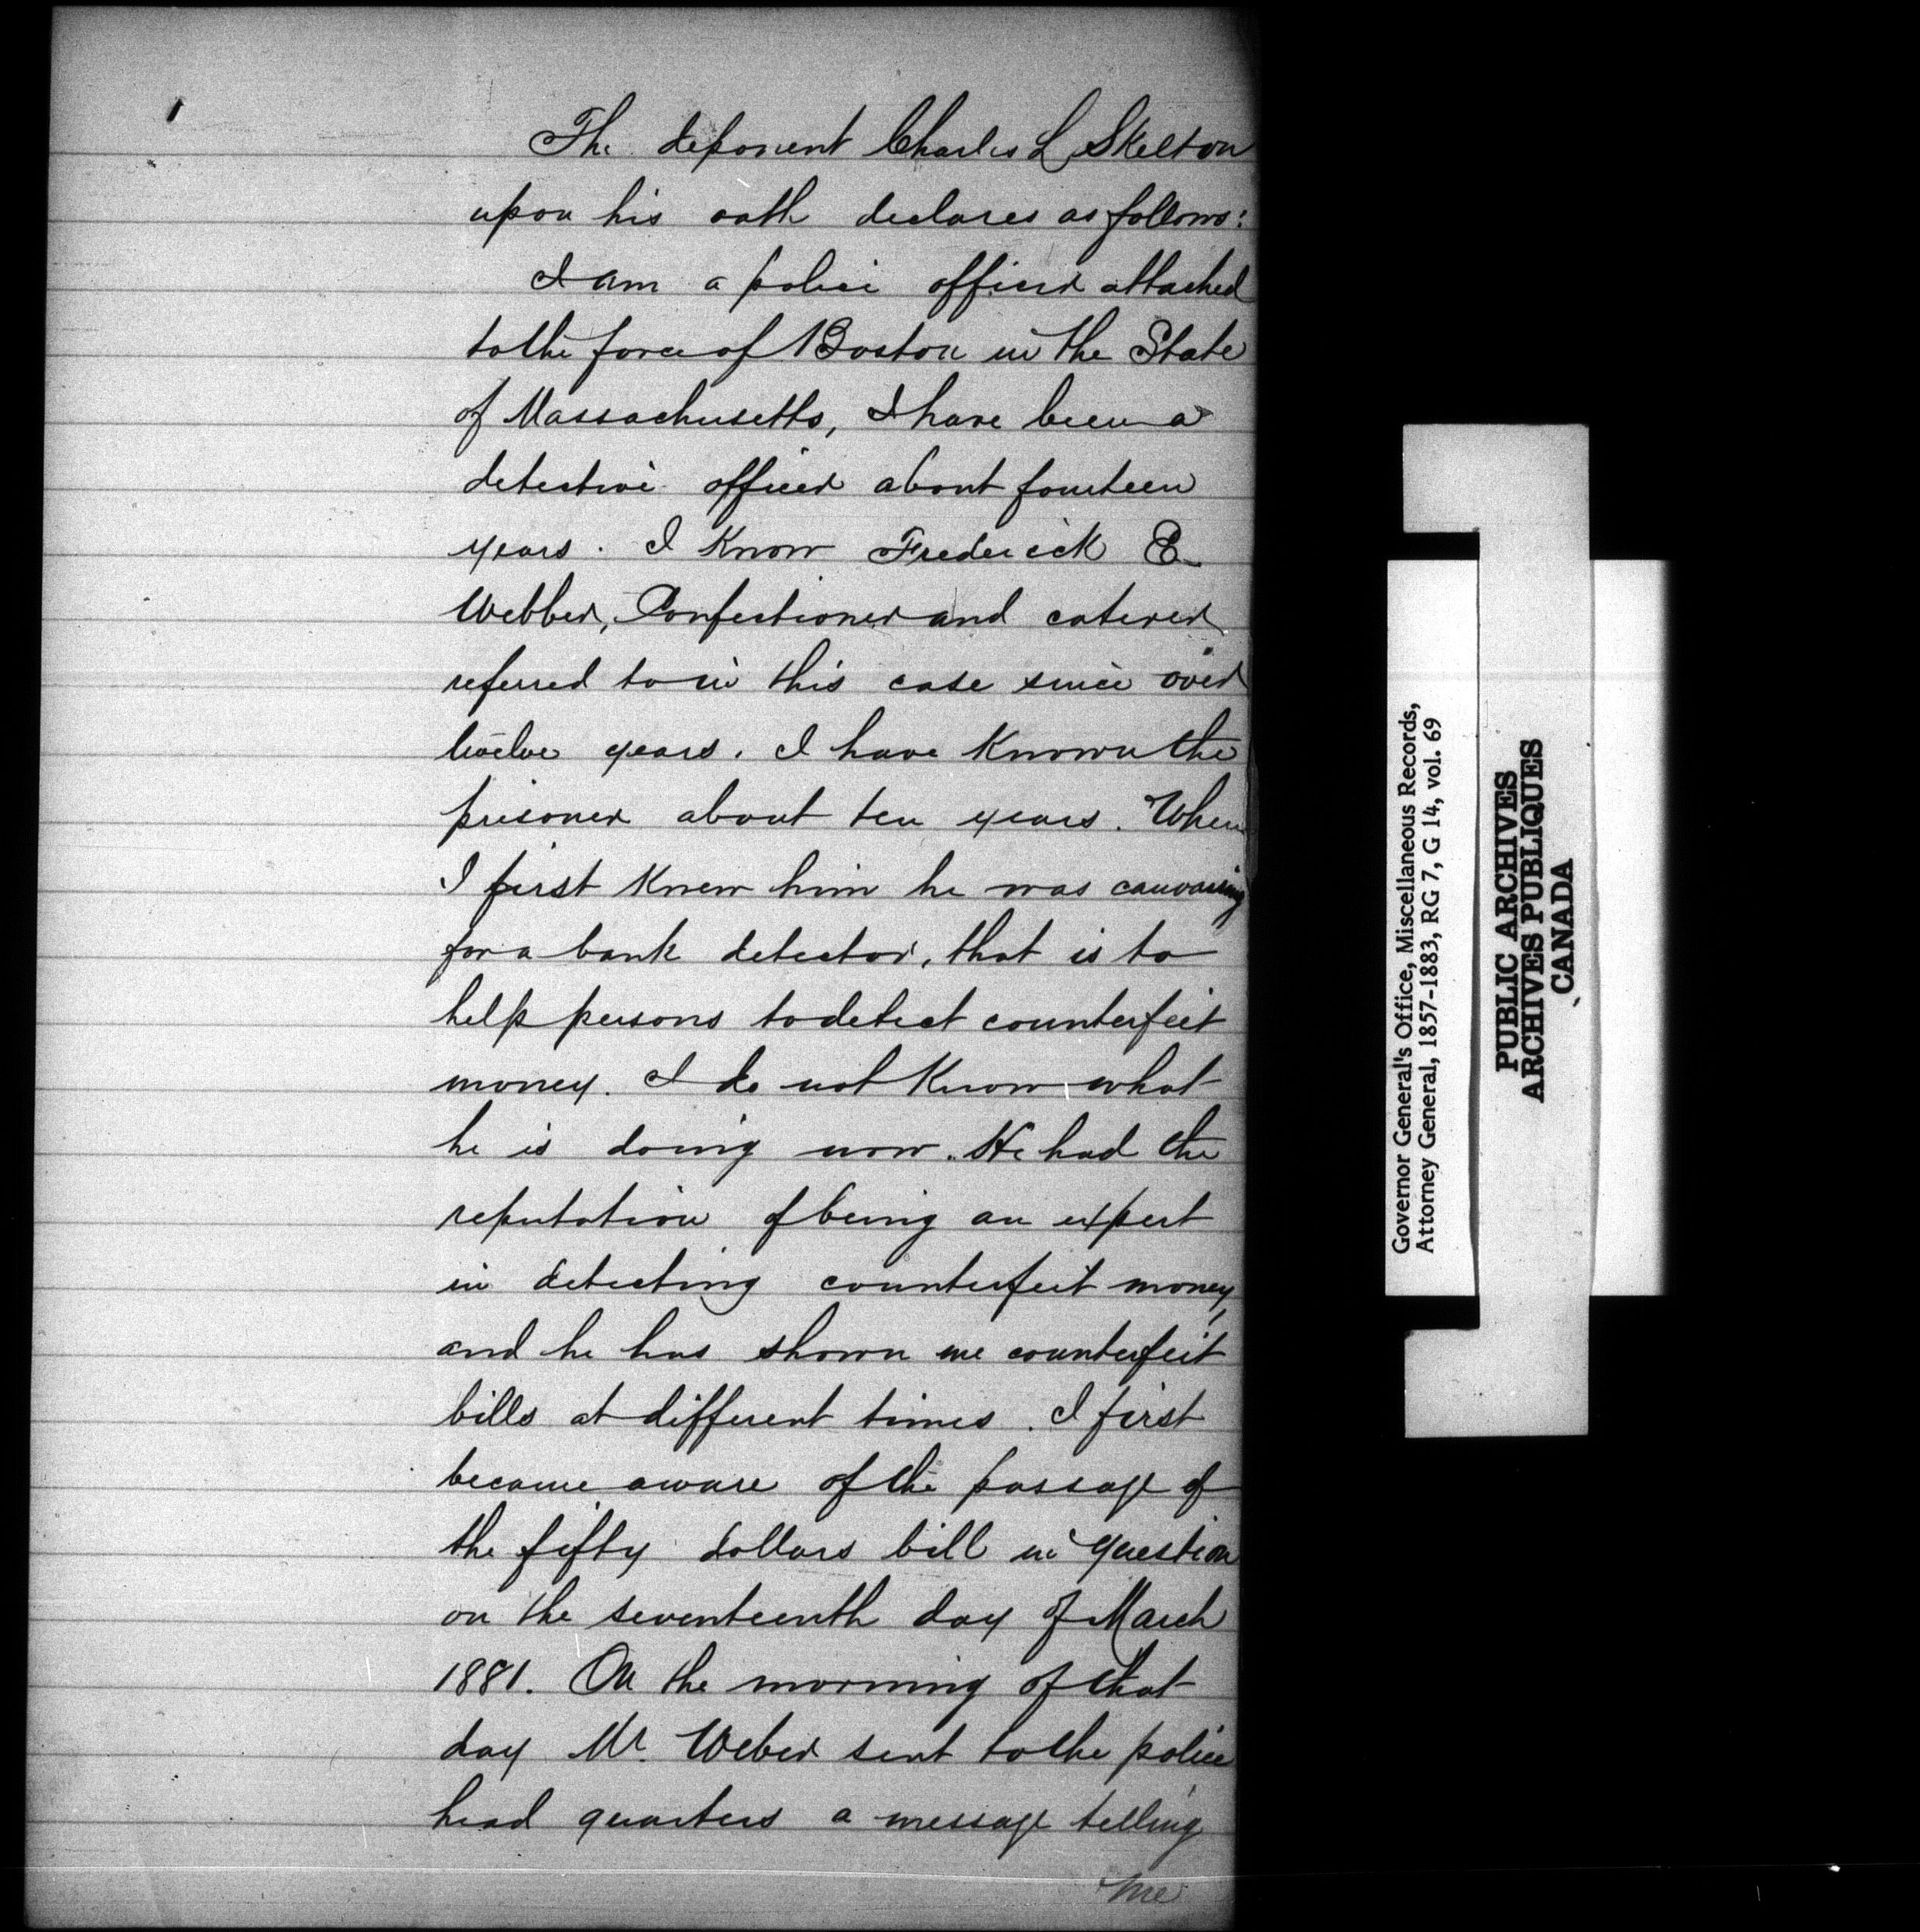 The deponent Charles L Skelton
upon his oath declares as follows:
I am a police officer attached
to the force of Boston in the State
of Massachusetts, I have been a
detective officer about fourteen
years. I know Frederick E.
Webber, Confectioner and caterer
referred to in this case since over
twelve years. I have known the
prisoner about ten years. When
I first knew him he was canvassing
for a bank detector, that is to
help persons to detect counterfeit
money. I do not know what
he is doing now. He had the
reputation of being an expert
in detecting counterfeit money,
and he has shown me counterfeit
bills at different times. I first
became aware of the passage of
the fifty dollars bill in question
on the seventeenth day of March
1881. On the morning of that
day Mr. Weber sent to the police
head quarters a message telling
me
Governor General's Office, Miscellaneous Records,
Attorney General, 1857-1883, RG 7, G 14, vol. 69
PUBLIC ARCHIVES
ARCHIVES PUBLIQUES
CANADA